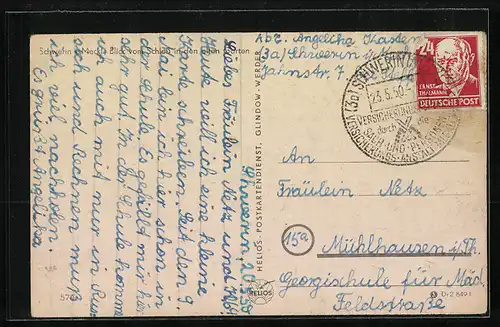 Schwerin i. Meckl. Blick vom Schloß in den Garten
Schwerin, 20.5.50
Liebes Fräulein Netz und Kl.!
Heute will ich eine kleine
Karte schreiben. Seit den 9.
Mai bin ich hier schon in
der Schule. Es gefällt mir hier
sehr gut. In der Schule komme
ich auch mit nur in Russ
isch und Rechnen muß
ich viel nachholen.
Es grüßt Angelika
HELIOS-POSTKARTENDIENST, GLINDOW-WERDER
HELIOS
Abs. Angelika Kasten
3a) Schwerin i. M
(3a) SCHWERIN
23.5.50
VERSICHERUNGS
durch die
SACH- UND
VERSICHERUNGS-ANSTALT
24
ERNST
THÄLMANN
DEUTSCHE POST
An
Fräulein Netz
15a
Mühlhausen i/Th.
Georgischule für Mäd.
Feldstraße